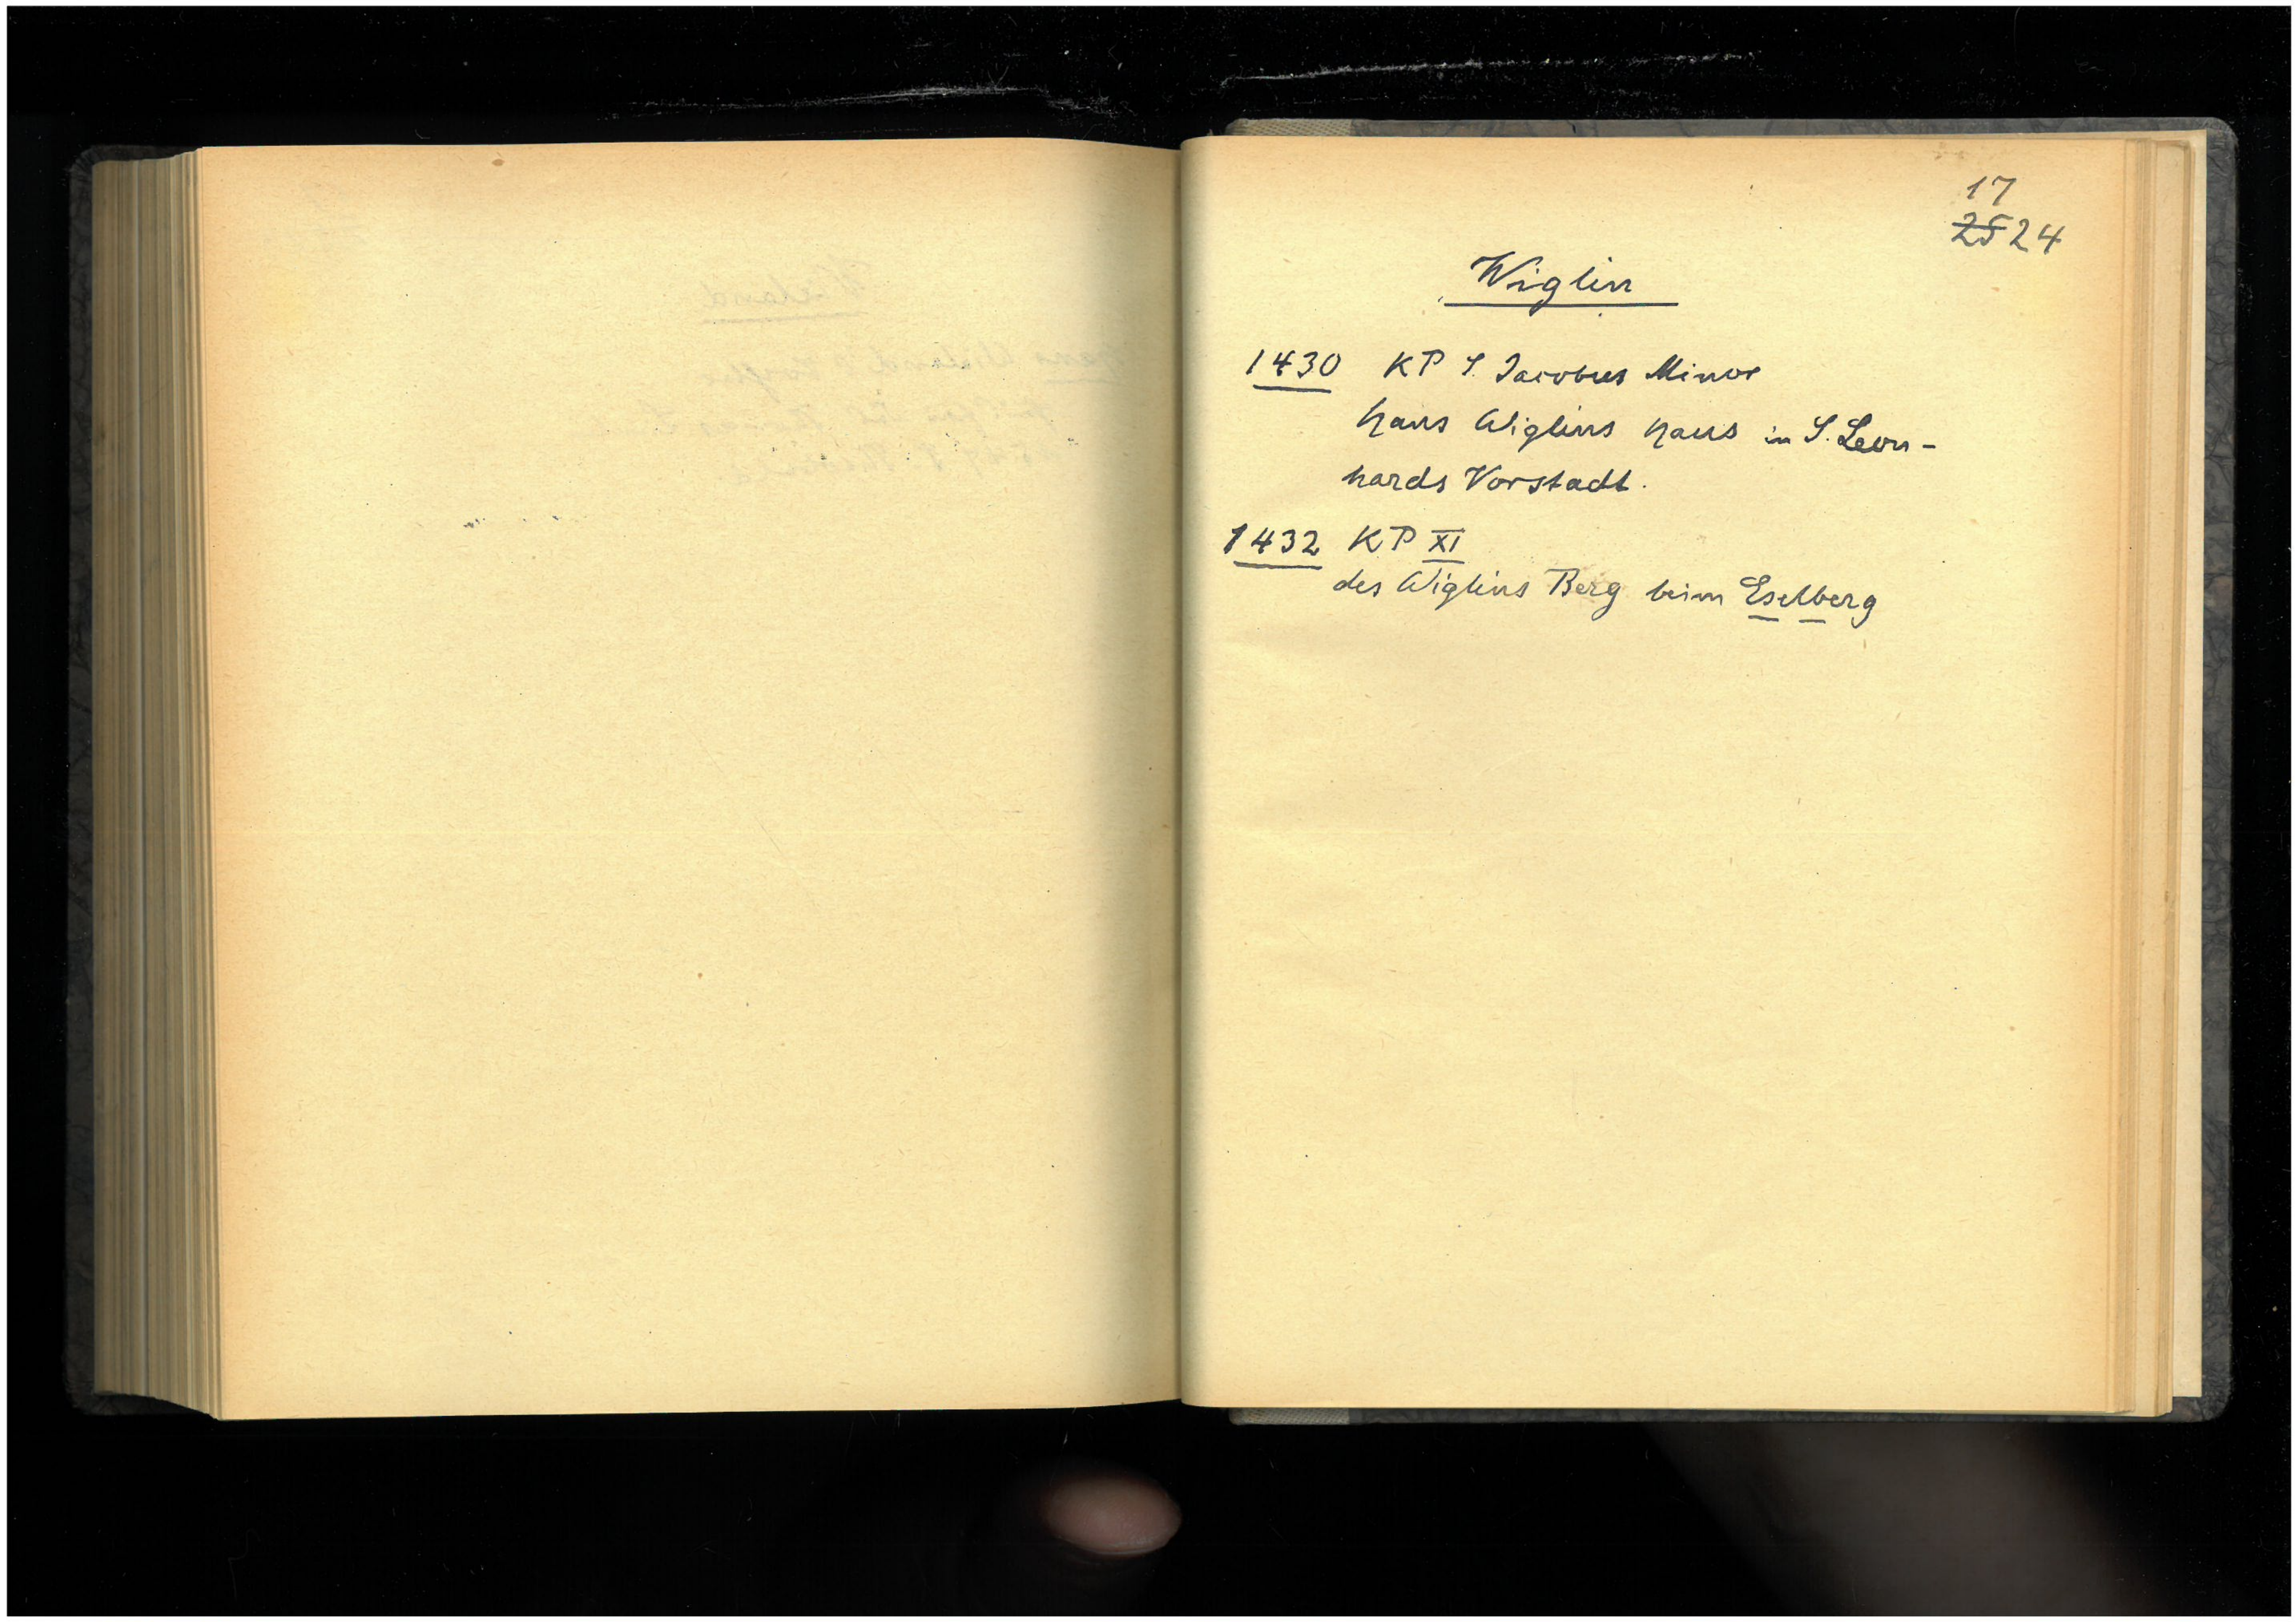 17
25 24
Wiglin
1430 KP S. Jacobus Minor
Hans Wiglins Haus in S. Leon-
hards Vorstadt.
1432 KP XI
des Wiglins Berg beim Eselberg